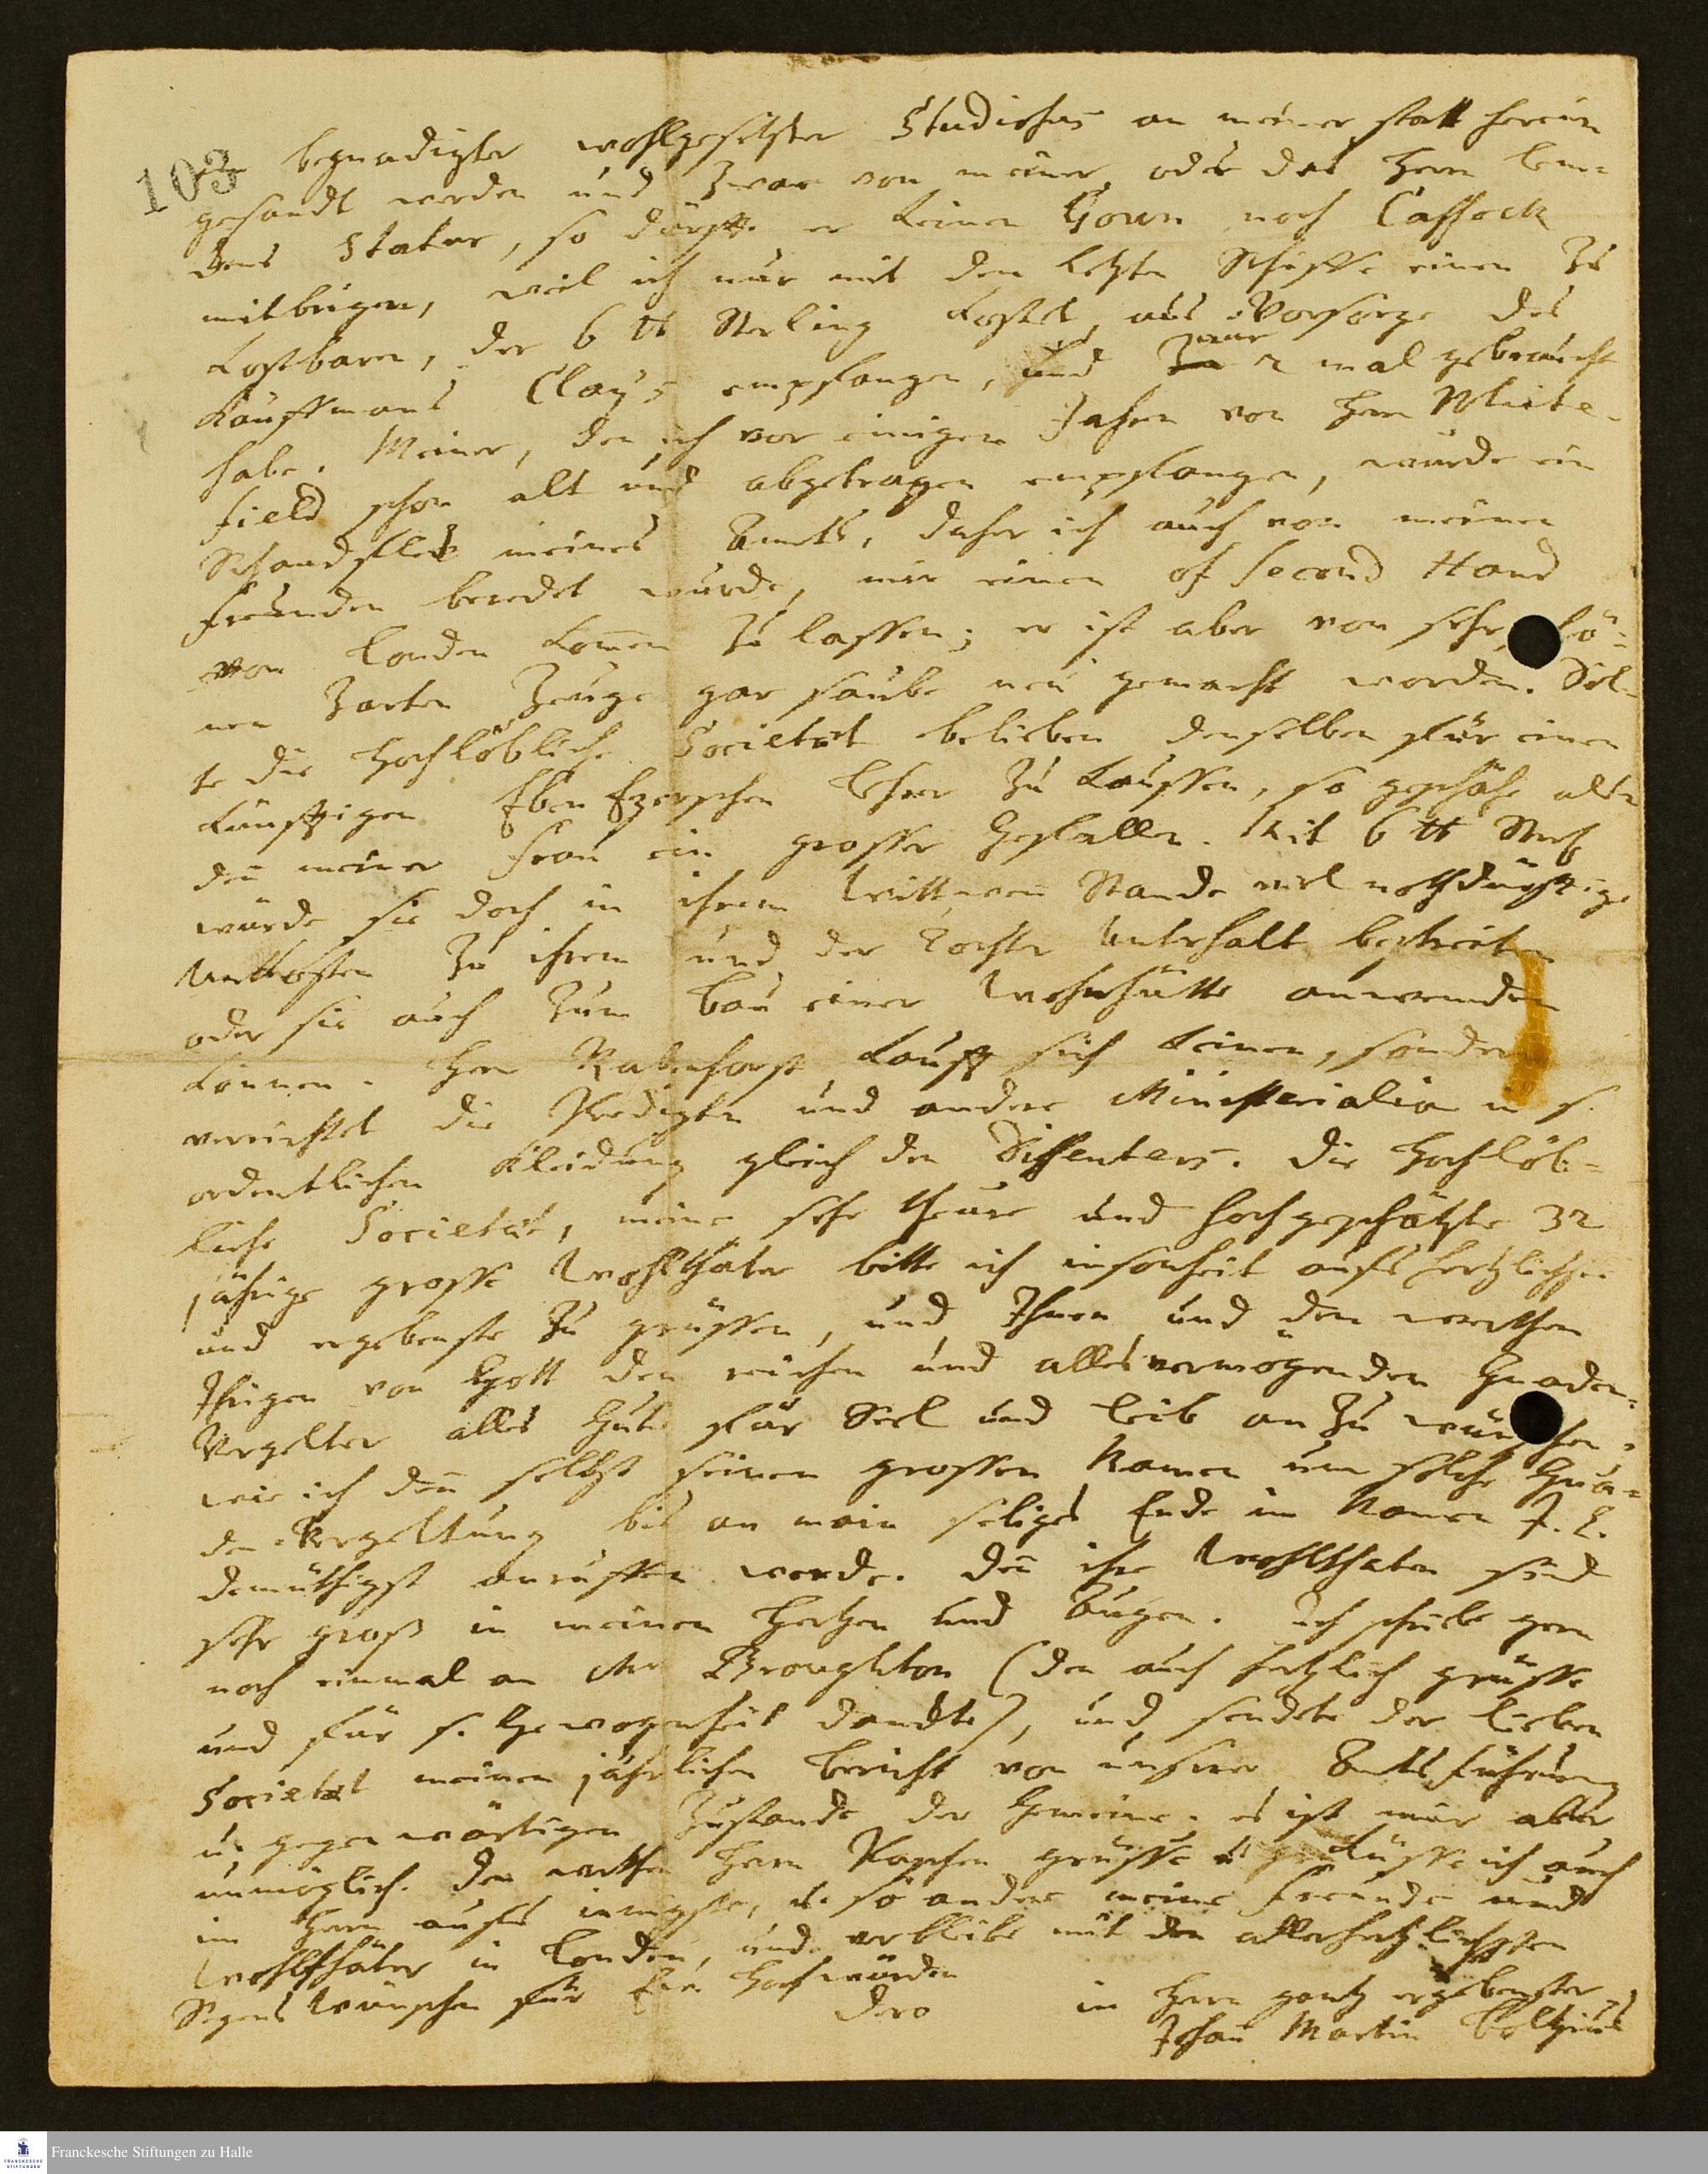 103
begnadigter wohlgesetzter Studiosus an meiner statt herein
gesandt werden und zwar von meiner oder des Herrn Lem-
kens Statur, so dürffte er keinen Gown noch Cassock
mitbringen, weil ich nur mit dem letzten Schiffe einen zu
kostbaren, der 6 lb Sterling kostet, aus Vorsorge des
Kauffmans Clays empfangen, und nur 2 mal gebraucht
habe. Meiner, den ich vor einigen Jahren von Herrn White-
field schon alt und abgetragen empfangen, wurde ein
Schandfleck meines Amts, daher ich auch von meinen
Freunden beredet wurde, mir einen of second Hand
von London kommen zu lassen; er ist aber von sehr schö-
nen zarten Zeuge gar sauber neu gemacht worden. Sol-
te die Hochlöbliche Societät belieben denselben für einen
künfftigen EbenEzerschen Lehrer zu kauffen, so geschähe als-
den meiner Frau ein grosser Gefallen. Mit 6 lb Sterl
würde sie doch in ihrem Wittwen Stande viel nothdürfftige
Unkosten zu ihrem und der Tochter Unterhalt bestreiten
oder sie auch zum Bau einer Wohnhütte anwenden
können. Herr Rabenhorst kaufft sich keinen, sondern
verrichtet die Predigten und andere Ministerialia in s.
ordentlichen Kleidung gleich den Dissenters. Die Hochlöb-
liche Societät, meine sehr theure und hochgeschätzte 32
jährige grosse Wohlthäter bitte ich insonheit aufs hertzlichste
und ergebenste zu grüssen, und Ihnen und den werthen
Ihrigen von Gott den reichen und alles vermögenden Gnaden-
Vergelter alles Gute für Seel und Leib an zu wünschen,
wie ich den selbst seinen grossen Namen um solche Gna-
den-Vergeltung bis an mein seliges Ende im Namen J. C.
demüthigst anruffen werde. Den ihre Wohlthaten sind
sehr groß in meinen Hertzen und Augen. Ich schriebe gern
noch einmal an Mr Broughton (den auch hertzlich grüsse
und für s. Gewogenheit danckte), und sendete der lieben
Societät meinen jährlichen Bericht von unsrer Amtsführung
u. gegenwärtigen Zustande der Gemeine. es ist mir aber
unmöglich. Den werthen Herrn Kaphen grüsse u. küsse ich auch
im Herrn aufs innigste, u. so andere meine Freunde und
Wohlthäter in London, und verbleibe mit den allerhertzlichsten
Segens Wünschen für Eur Hochwürden
Dero in Herrn gantz ergebenster
Johan Martin Boltzius
Franckesche Stiftungen zu Halle